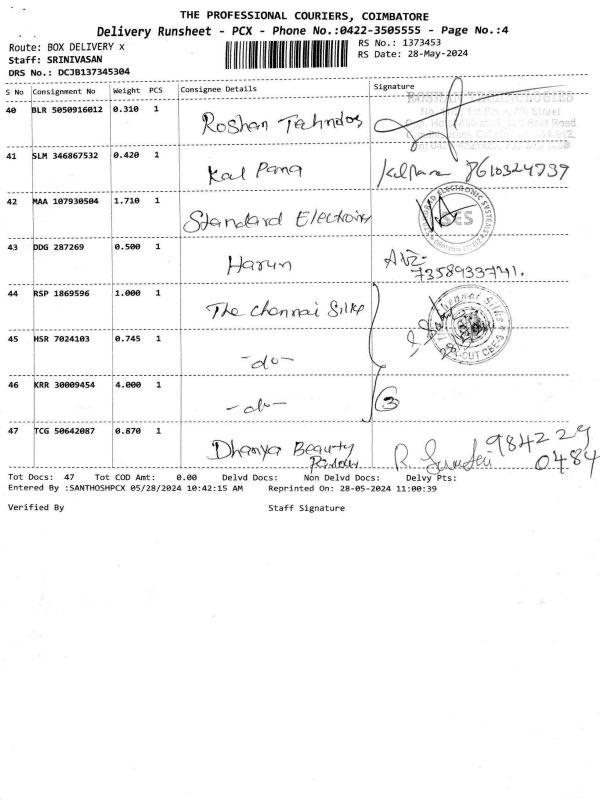 THE PROFESSIONAL COURIERS, COIMBATORE
Delivery Runsheet - PCX - Phone No.:0422-3505555 - Page No.:4
Route: BOX DELIVERY x RS No.: 1373453
Staff: SRINIVASAN RS Date: 28-May-2024
DRS No.: DCJB137345304
S No Consignment No Weight PCS Consignee Details Signature
40 BLR 5050916012 0.310 1 Roshan Technolos
ROSHAN TECHNOLOGIES
41 SLM 346867532 0.420 1 Kal Pana Kalpana 8610324739
42 MAA 107930504 1.710 1 Standard Electronix
ELECTRONIC SYSTEMS
SES
43 DDG 287269 0.500 1 Harun
7358933741.
44 RSP 1869596 1.000 1 The Chennai Silks
Chennai Silks
CUT CBE-
45 HSR 7024103 0.745 1 -do-
46 KRR 30009454 4.000 1 -do- 3
47 TCG 50642087 0.870 1 Dhanya Beauty Parlour R. 984229
0484
Tot Docs: 47 Tot COD Amt: 0.00 Delvd Docs: Non Delvd Docs: Delvy Pts:
Entered By :SANTHOSHPCX 05/28/2024 10:42:15 AM Reprinted On: 28-05-2024 11:00:39
Verified By Staff Signature